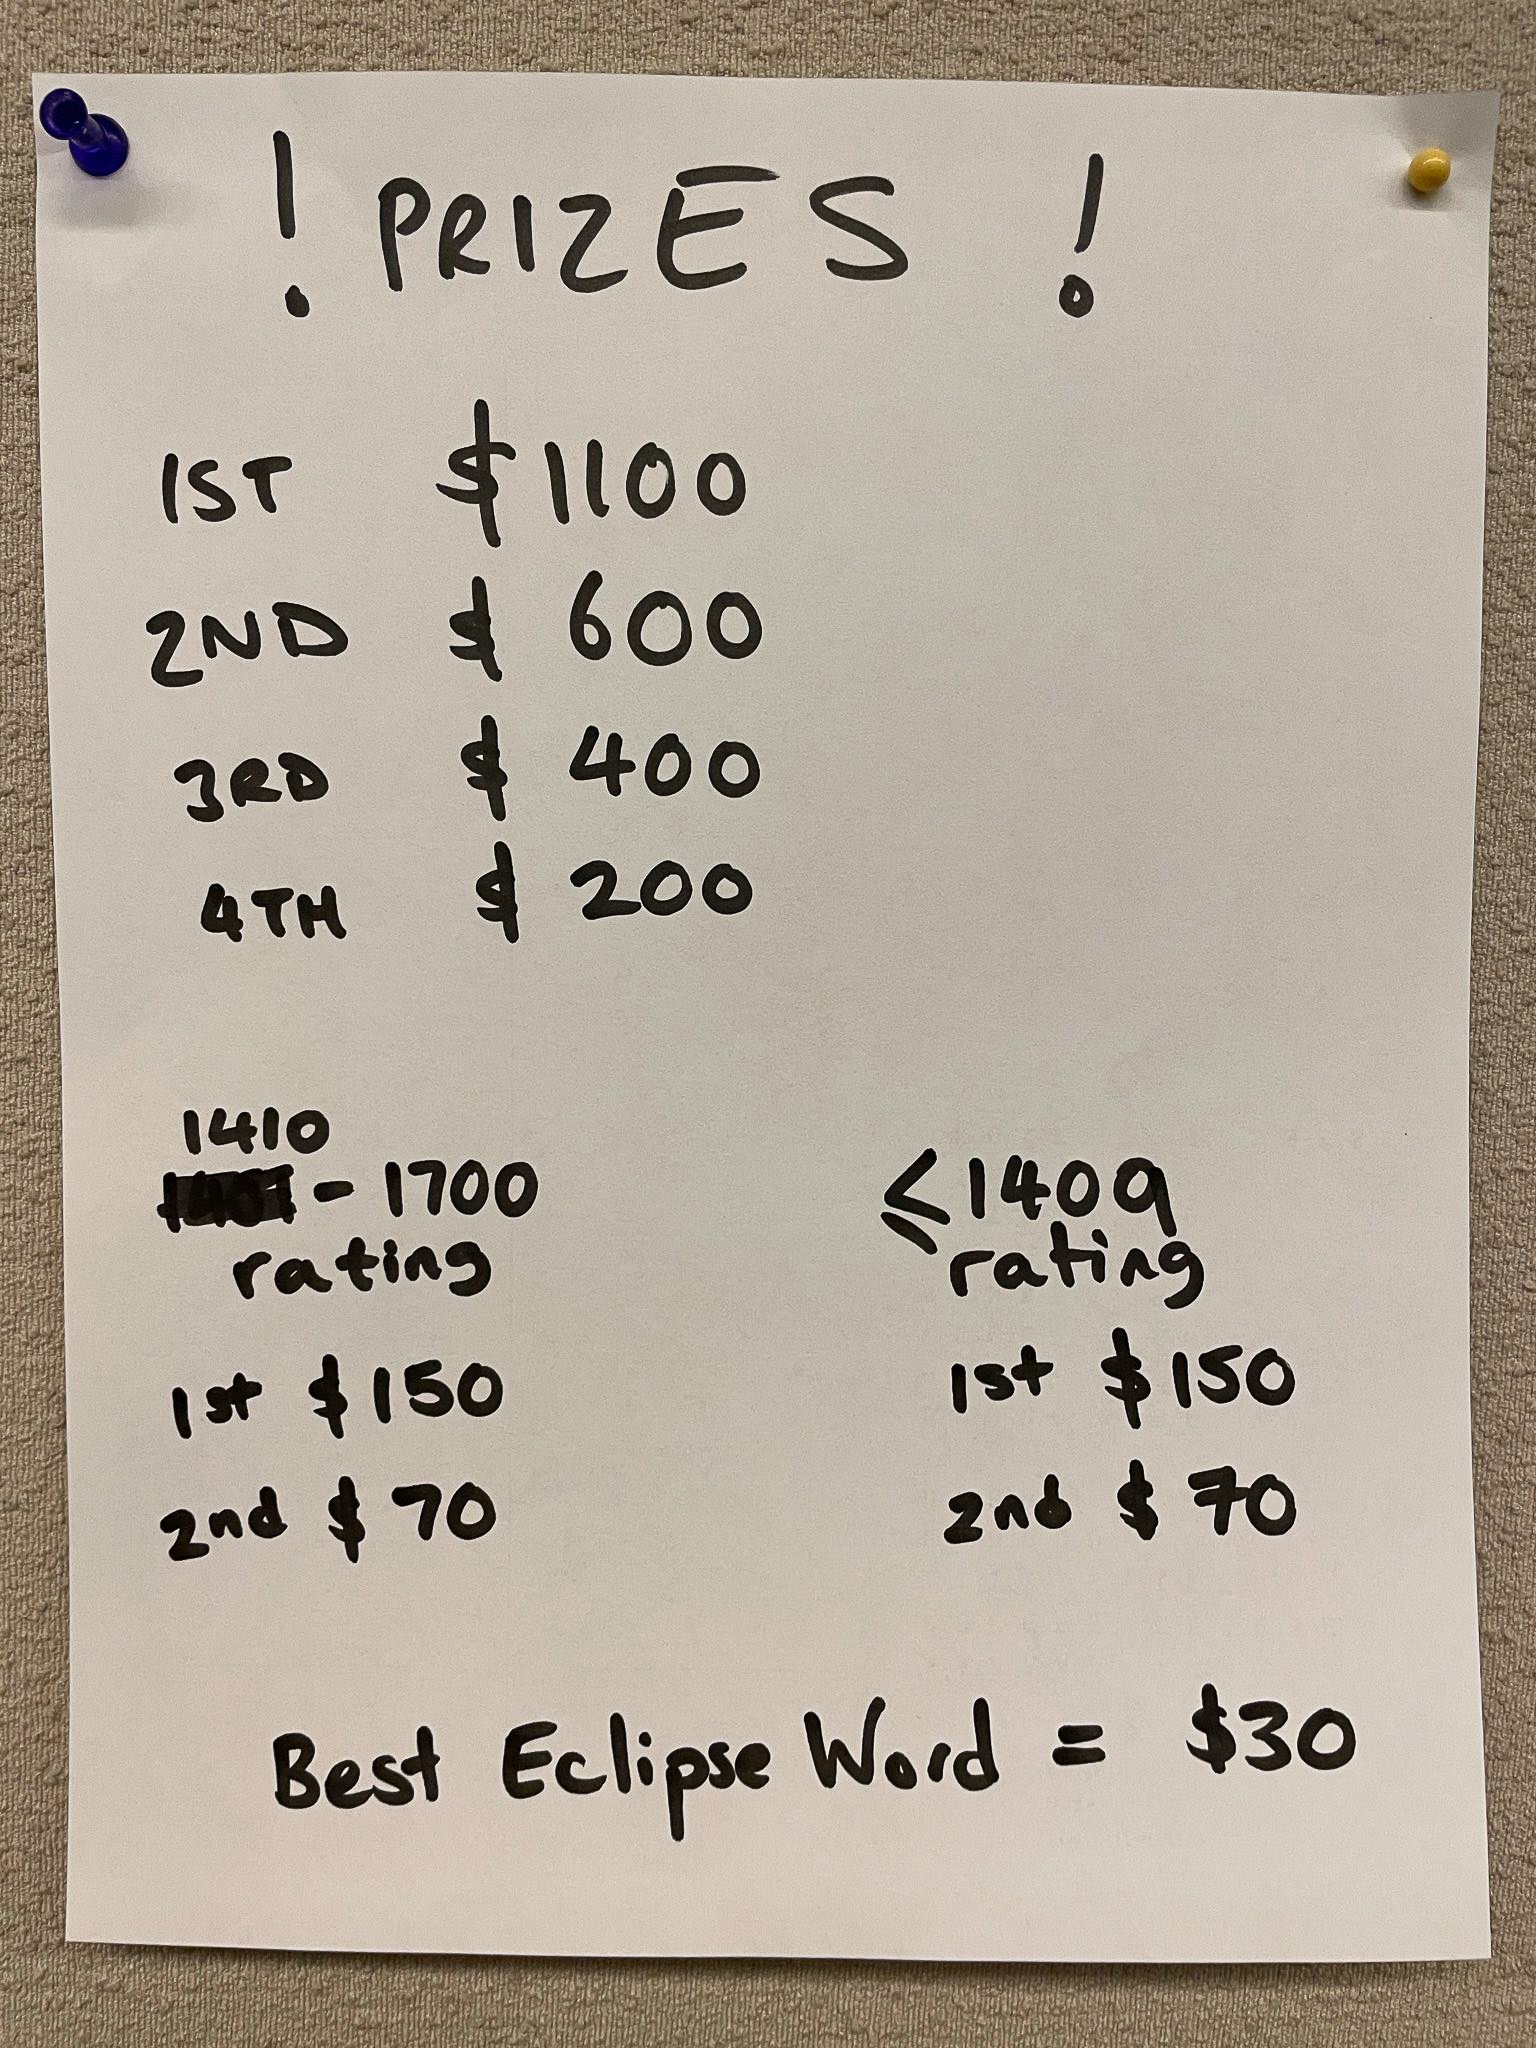 ! PRIZES !
1ST $1100
2ND $ 600
3RD $ 400
4TH $ 200
1410
- 1700
rating
1st $150
2nd $ 70
≤1409
rating
1st $150
2nd $ 70
Best Eclipse Word = $30